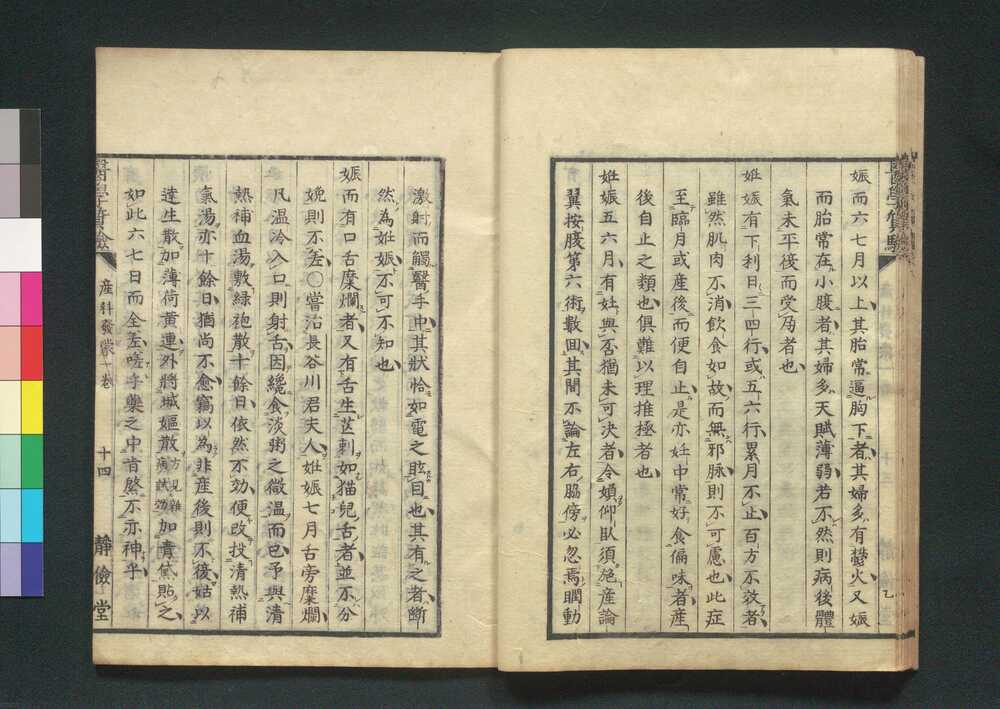 娠而六七月以上其胎常逼胸下者其婦多有鬱火又娠
而胎常在小腹者其婦多天賦薄弱若不然則病後體
氣未平復而受孕者也
妊娠有下利日三四行或五六行累月不止百方不效者
雖然肌肉不消飲食如故而無邪脉則不可慮也此症
至臨月或產後而便自止是亦妊中常好食偏味者產
後自止之類也俱難以理推極者也
妊娠五六月有妊與否猶未可決者令媍仰臥須施產論
翼按腹第六術數回其間不論左右脇傍必忽焉瞤動
激射而觸醫手中其狀恰如電之眩目也其有之者斷
然為妊娠不可不知也
娠而有口舌糜爛者又有舌生芒刺如猫兒舌者並不分
娩則不差○嘗治長谷川君夫人妊娠七月舌旁糜爛
凡溫冷入口則射舌因纔食淡粥之微溫而已予與清
熱補血湯敷綠袍散十餘日依然不効便改投清熱補
氣湯亦十餘日猶尚不愈竊以為非產後則不復姑以
達生散加薄荷黃連外將城嫗散方見雜病試効加青黛貼之
如此六七日而全差嗟乎藥之中肯綮不亦神乎
產科發蒙一卷
十四
靜儉堂